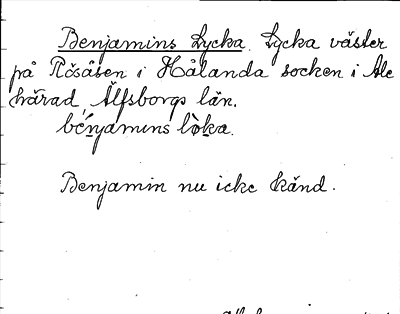 Benjamins Lycka. Lycka väster
på Rösåsen i Hålanda socken i Ale
härad, Älfsborgs län.
bénjamins lòka.
Benjamin nu icke känd.